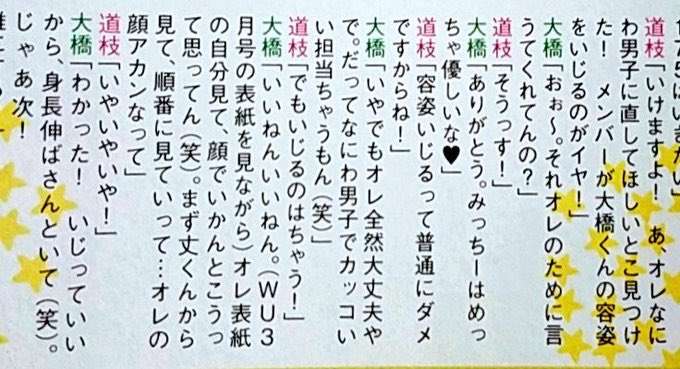 175はいきたい」
道枝「いけますよ！　あ、オレなに
わ男子に直してほしいとこ見つけ
た！　メンバーが大橋くんの容姿
をいじるのがイヤ！」
大橋「おぉ〜。それオレのために言
うてくれてんの？」
道枝「そうっす！」
大橋「ありがとう。みっちーはめっ
ちゃ優しいな♥」
道枝「容姿いじるって普通にダメ
ですからね！」
大橋「いやでもオレ全然大丈夫や
で。だってなにわ男子でカッコい
い担当ちゃうもん（笑）」
道枝「でもいじるのはちゃう！」
大橋「いいねんいいねん。（WU3
月号の表紙を見ながら）オレ表紙
の自分見て、顔でいかんとこうっ
て思ってん（笑）。まず丈くんから
見て、順番に見ていって…オレの
顔アカンなって」
道枝「いやいやいや！」
大橋「わかった！　いじっていい
から、身長伸ばさんといて（笑）。
じゃあ次！